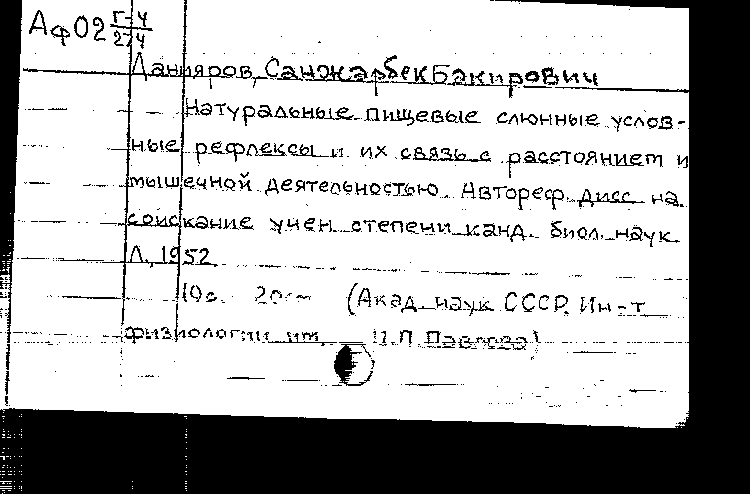 Аф02 Г-4/274
Данияров, Санжарбек Бакирович
Натуральные пищевые слюнные услов-
ные рефлексы и их связь с расстоянием и
мышечной деятельностью. Автореф. дисс. на
соискание учен. степени канд. биол. наук
Л., 1952
10с. 20см (Акад. наук СССР. Ин-т
физиологии им. И.П. Павлова)